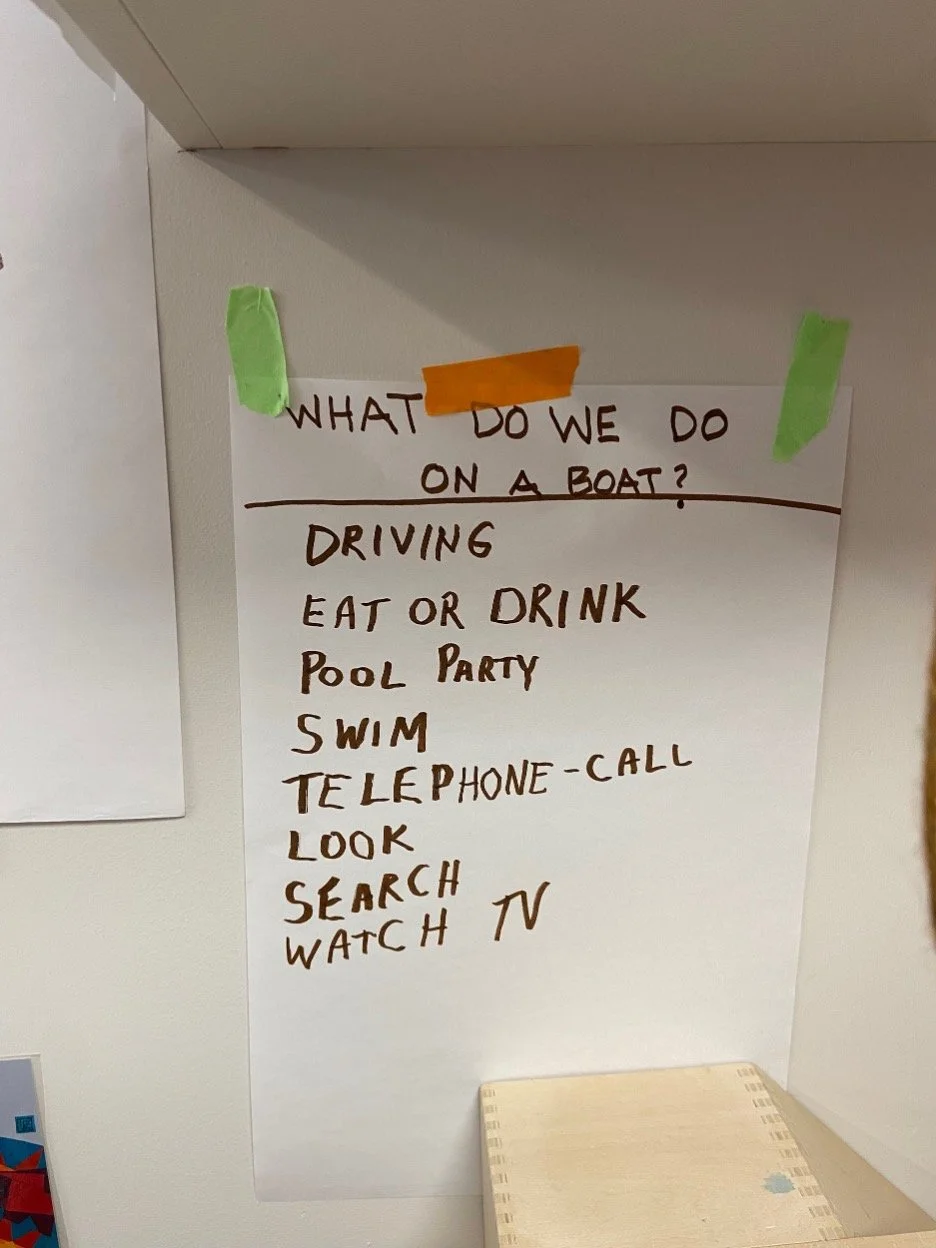 WHAT DO WE DO
ON A BOAT?
DRIVING
EAT OR DRINK
POOL PARTY
SWIM
TELEPHONE-CALL
LOOK
SEARCH
WATCH TV